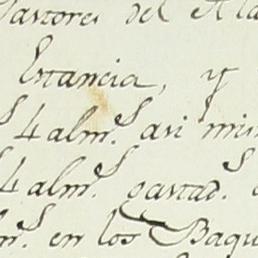 Pastores del
Estancia, y
4 alm.s asi mis
4 alm.s gastad.s
m.s en los Baqu